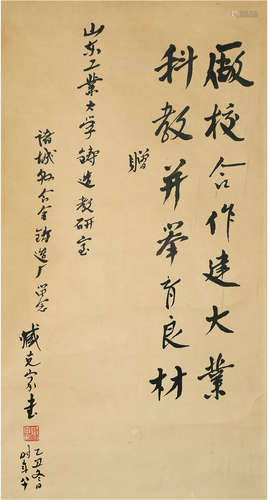 厰校合作建大業
科教并举育良材
赠
山东工業大学铸造教研室
诸城合金铸造厂
臧克家书
乙丑冬日
时年八